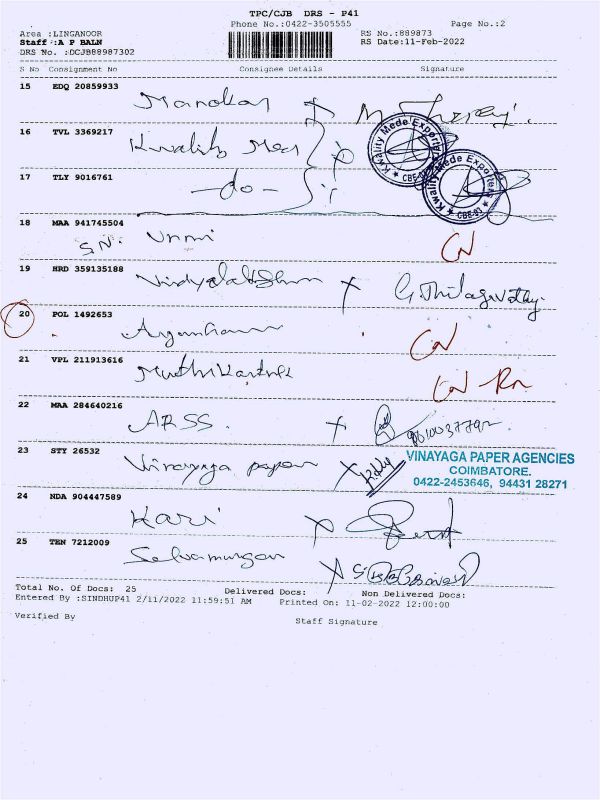 TPC/CJB DRS - P41
Phone No.:0422-3505555
Page No.:2
Area :LINGANOOR
RS No.:889873
Staff :A P BALN
RS Date:11-Feb-2022
DRS No. :DCJB88987302
S No Consignment No Consignee Details Signature
15 EDQ 20859933
Manokar
16 TVL 3369217
Kwality Med
Kwality Mede Exporters
17 TLY 9016761
-do-
Kwality Mede Exporters
CBE-83
18 MAA 941745504
S.N. Unni
19 HRD 359135188
20 POL 1492653
21 VPL 211913616
22 MAA 284640216
ARSS.
23 STY 26532
Vinayaga paper
VINAYAGA PAPER AGENCIES
COIMBATORE.
0422-2453646, 94431 28271
24 NDA 904447589
Hari
25 TEN 7212009
Selvamurugan
Total No. Of Docs: 25 Delivered Docs: Non Delivered Docs:
Entered By :SINDHUP41 2/11/2022 11:59:51 AM Printed On: 11-02-2022 12:00:00
Verified By
Staff Signature